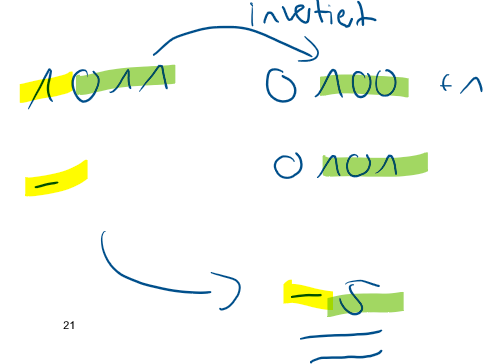 invertiert
1011 0100 +1
- 0101
-5
21